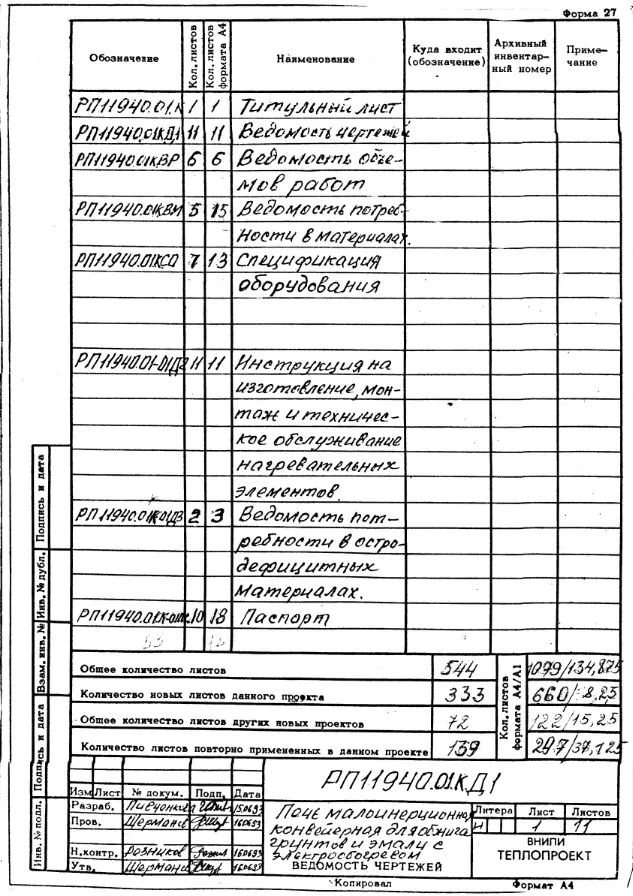 Форма 27
Обозначение Кол. листов Кол. листов формата А4 Наименование Куда входит (обозначение) Архивный инвентарный номер Примечание
РП11940.01.К 1 1 Титульный лист
РП11940.01КД1 11 11 Ведомость чертежей
РП11940.01КВР 6 6 Ведомость объе-
мов работ
РП11940.01КВМ 5 15 Ведомость потреб-
ности в материалах.
РП11940.01КСО 7 13 Спецификация
оборудования
РП11940.01-01Д2 11 11 Инструкция на
изготовление, мон-
таж и техничес-
кое обслуживание
нагревательных
элементов.
2 3 Ведомость пот-
ребности в остро-
дефицитных
материалах.
10 18 Паспорт
Общее количество листов 544 1099/134,875
Количество новых листов данного проекта 333
Общее количество листов других новых проектов 72 122/15,25
Количество листов повторно примененных в данном проекте 139 297/37,125
Кол. листов формата А4/А1
Подпись и дата
Инв. № дубл.
Взам. инв. №
Подпись и дата
Инв. № подл.
РП11940.01.КД1
Изм Лист № докум. Подп. Дата
Разраб. 150693
Пров. Шерман 160693
Н.контр. Розников 160693
Утв. Шерман 160693
Печь малоинерционная
конвейерная для обжига
грунтов и эмали с
электрообогревом
ВЕДОМОСТЬ ЧЕРТЕЖЕЙ
Литера Лист Листов
И 1 11
ВНИПИ
ТЕПЛОПРОЕКТ
Копировал Формат А4